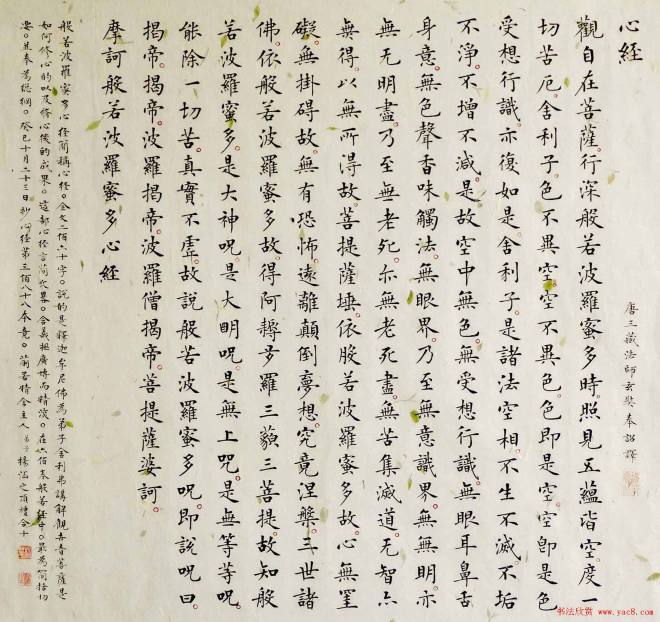 心經
唐三藏法師玄奘奉詔譯
觀自在菩薩。行深般若波羅蜜多時。照見五蘊皆空。度一
切苦厄。舍利子。色不異空。空不異色。色即是空。空即是色。
受想行識。亦復如是。舍利子。是諸法空相。不生不滅。不垢
不淨。不增不減。是故空中無色。無受想行識。無眼耳鼻舌
身意。無色聲香味觸法。無眼界。乃至無意識界。無無明。亦
無无明盡。乃至無老死。亦無老死盡。無苦集滅道。无智亦
無得。以無所得故。菩提薩埵。依般若波羅蜜多故。心無罣
礙。無掛碍故。無有恐怖。遠離顛倒夢想。究竟涅槃。三世諸
佛。依般若波羅蜜多故。得阿耨多羅三藐三菩提。故知般
若波羅蜜多。是大神咒。是大明咒。是無上咒。是無等等咒。
能除一切苦。真實不虛。故說般若波羅蜜多咒。即說咒曰。
揭帝。揭帝。波羅揭帝。波羅僧揭帝。菩提薩婆訶。
摩訶般若波羅蜜多心經
般若波羅蜜多心經簡稱心經。全文二佰六十字。說的是釋迦牟尼佛為弟子舍利弗講解觀世音菩薩是
如何修心的以及修心後的成果。這部心經言簡
在六佰卷般若經中。最為簡括切
要。癸巳十月二十三日抄心經第三佰八十八卷竟。蘭若精舍主人
合十
书法欣赏 www.yac8.com